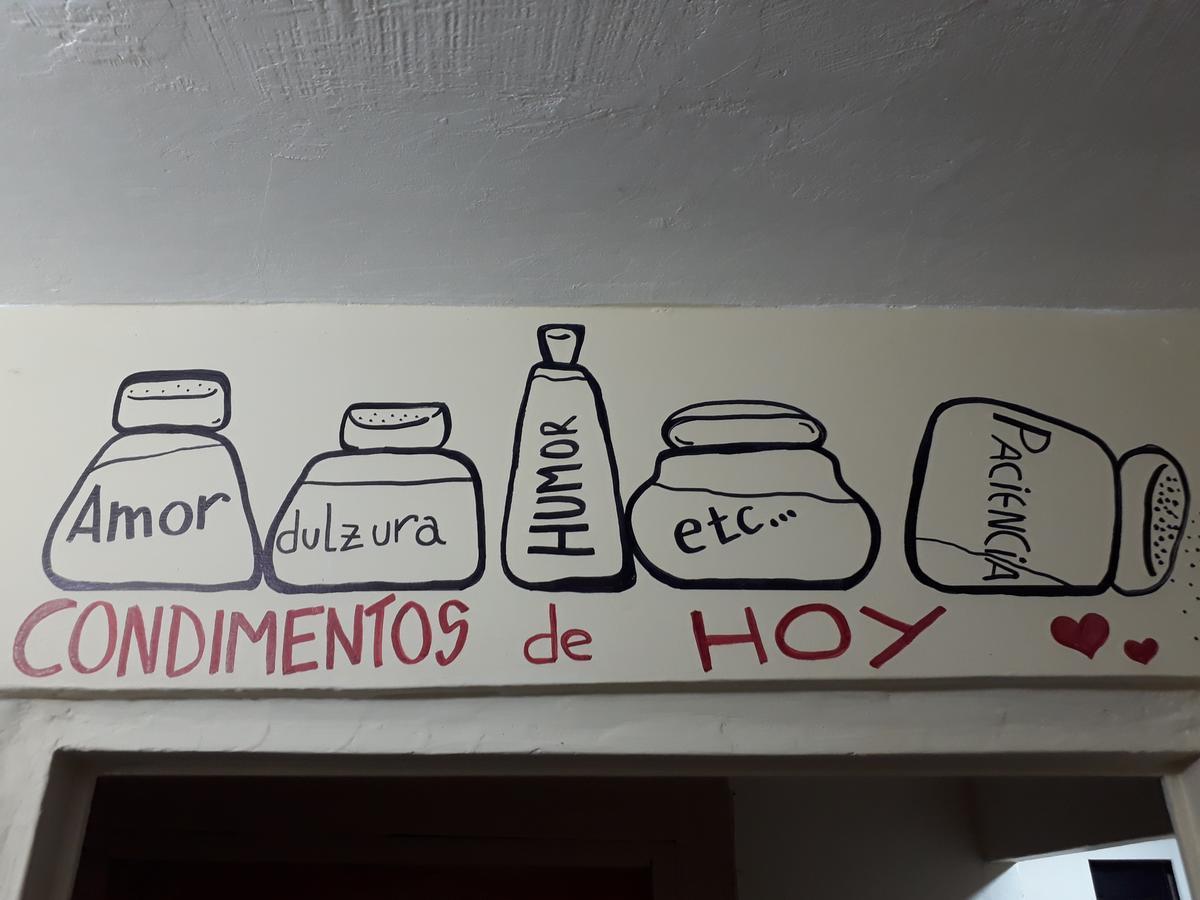 Amor
dulzura
HUMOR
etc...
PACIENCIA
CONDIMENTOS de HOY